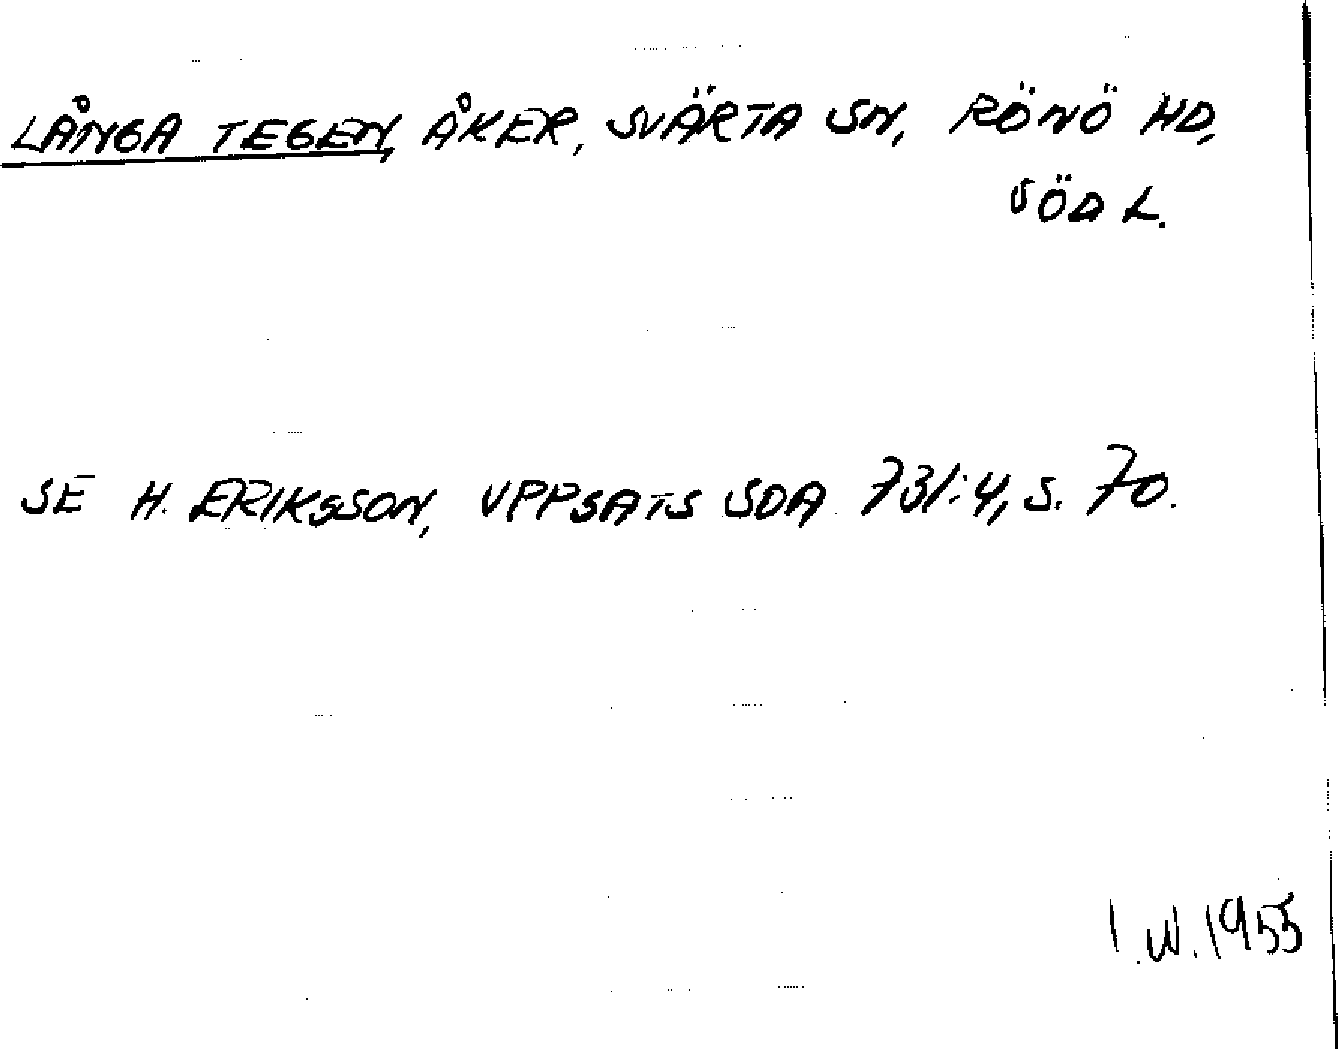 LÅNGA TEGEN, ÅKER, SVÄRTA SN, RÖNÖ HD,
SÖD L.
SE H. ERIKSSON, UPPSATS SOA 731:4, S. 70.
I.W. 1955